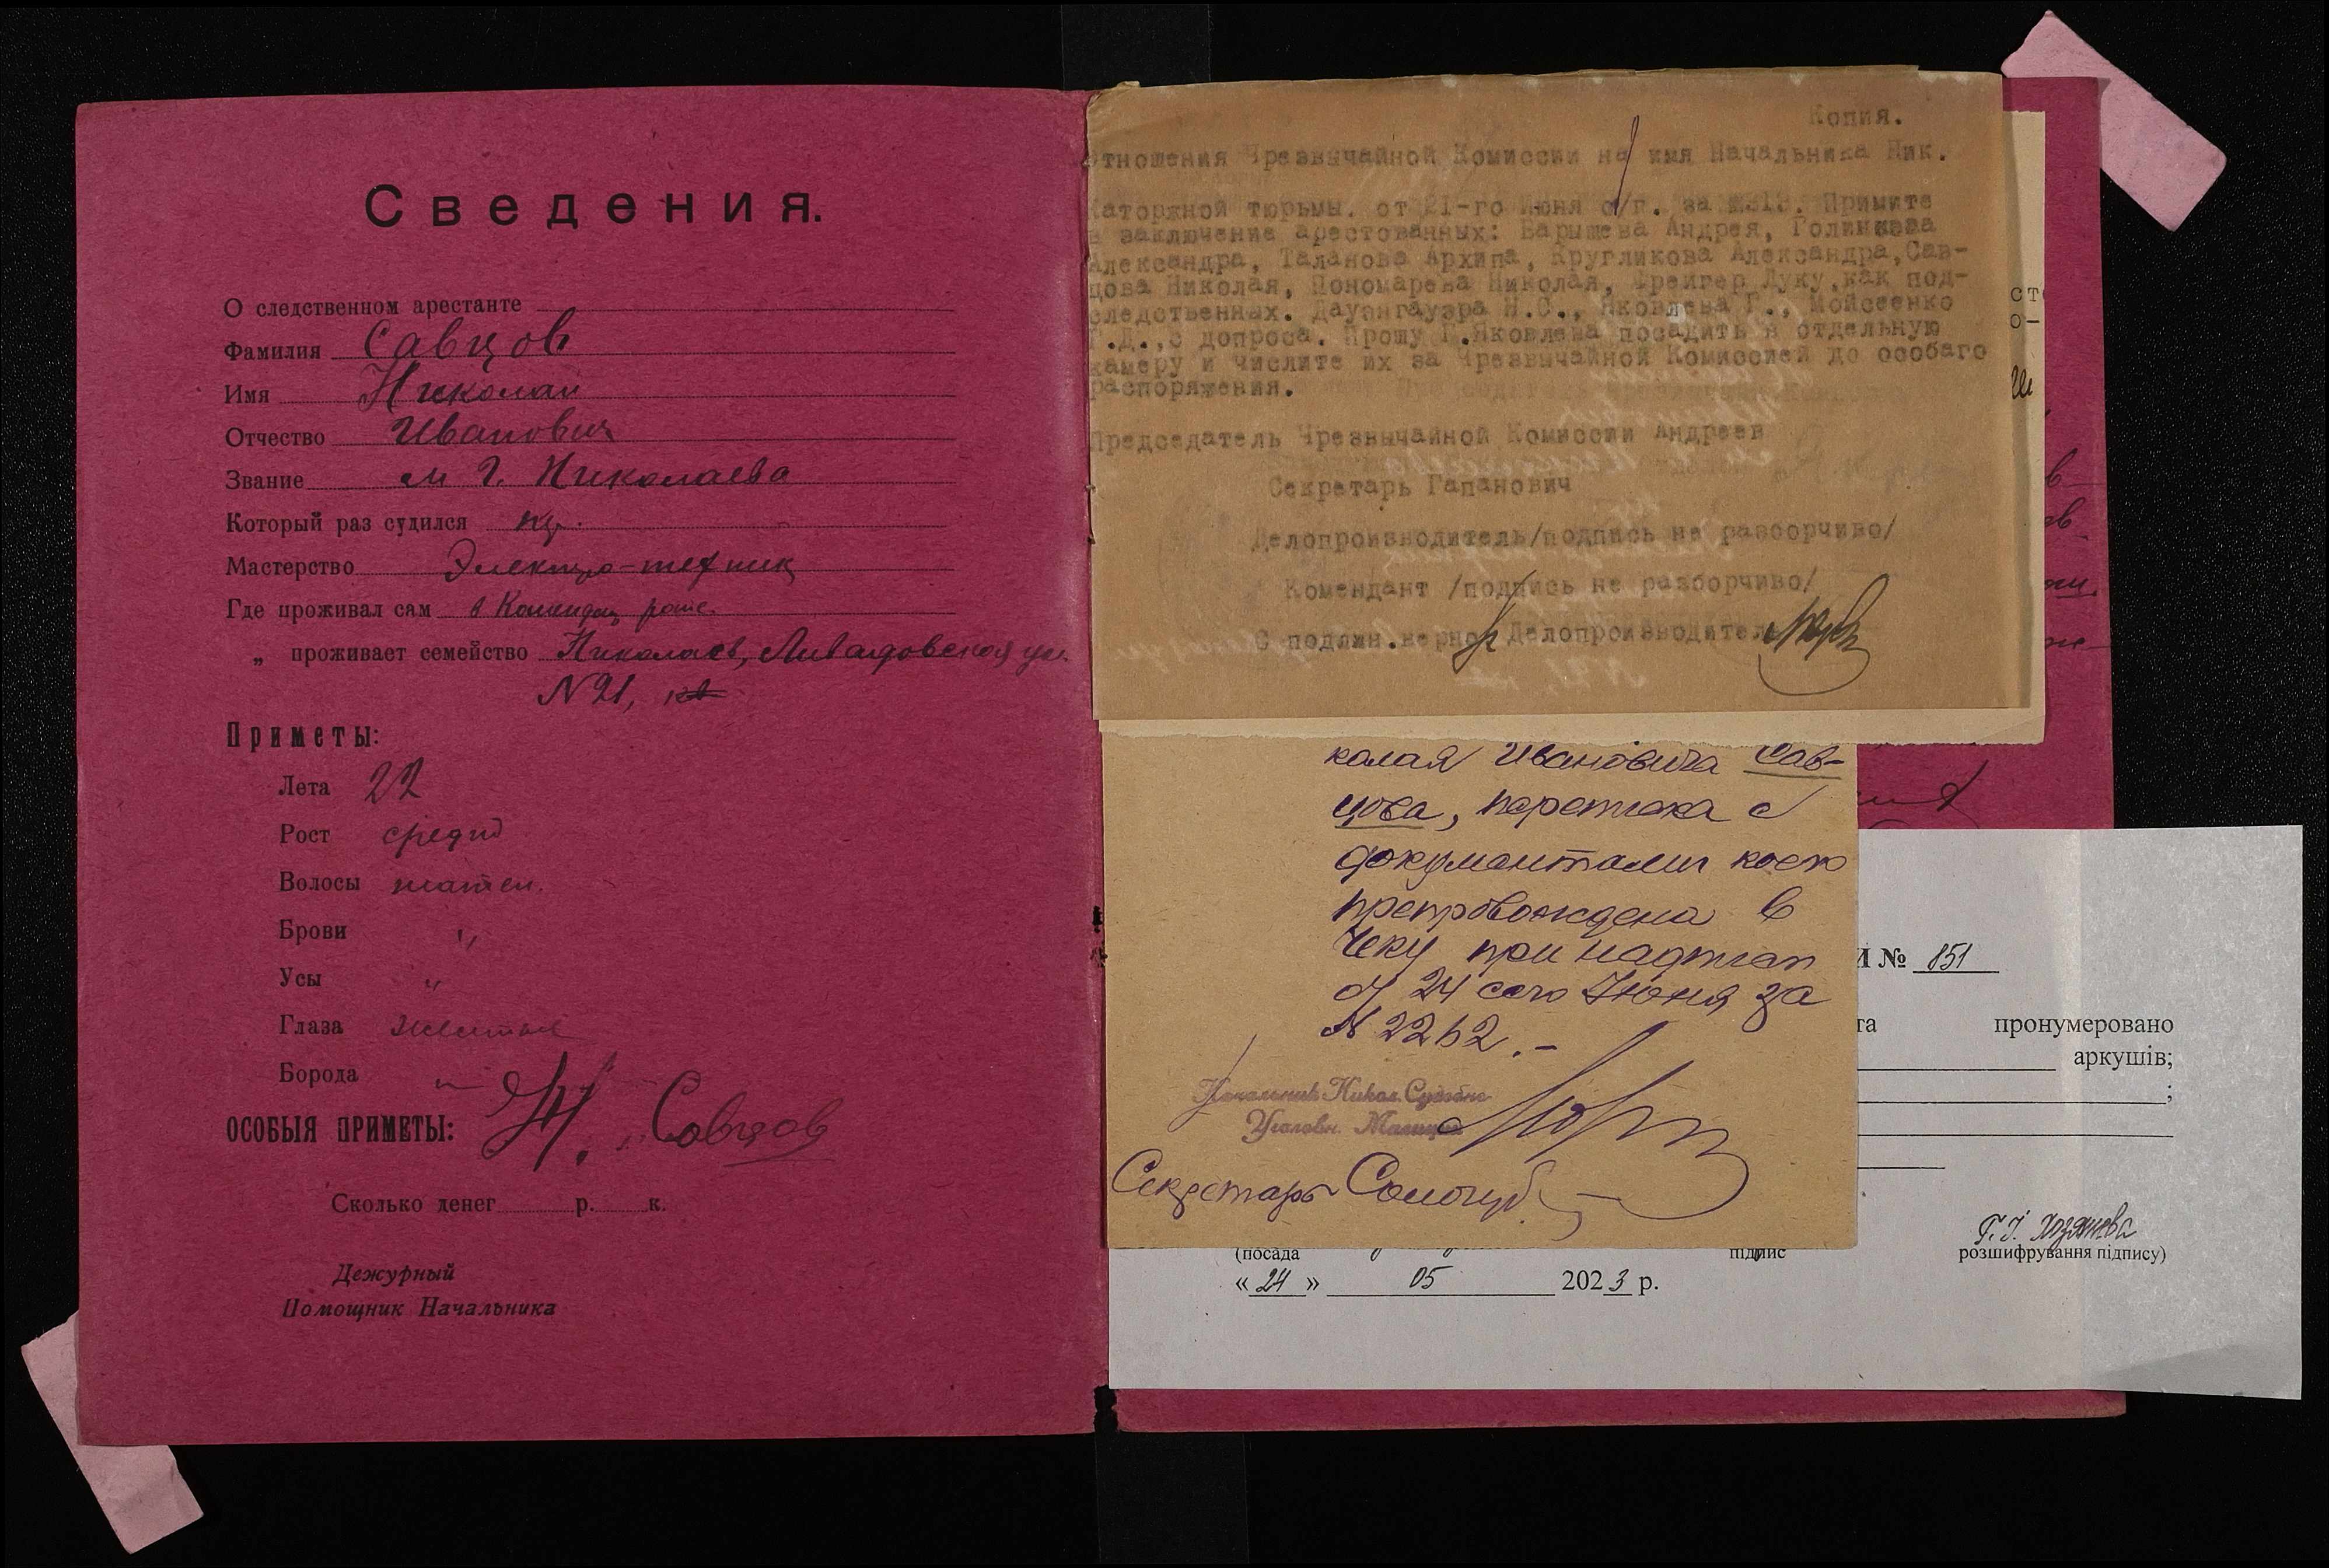 Сведения.
О следственном арестанте
Фамилия Савцов
Имя Николай
Отчество Иванович
Звание м г. Николаева
Который раз судился
Мастерство Электро-техник
Где проживал сам в Командн роте
„ проживает семейство Николаев, Ливадовская ул.
№ 21, кв
Приметы:
Лета 22
Рост средн
Волосы шатен.
Брови „
Усы „
Глаза
Борода
ОСОБЫЯ ПРИМЕТЫ: Н. Савцов
Сколько денег р. к.
Дежурный
Помощник Начальника
Копия.
Отношения Чрезвычайной Комиссии на имя Начальника Ник.
Каторжной тюрьмы. от 21-го Июня с/г. за Примите
в заключение арестованных: Барышева Андрея, Голикова
Александра, Таланова Архипа, Кругликова Александра,Сав-
цова Николая, Пономарева Николая, Фрейгер Луку,как под-
следственных. Дауэнгауэра Н.С., Яковлева Г., Мойсеенко
Г.Д.,с допроса. Прошу Г.Яковлева посадить в отдельную
камеру и числите их за Чрезвычайной Комиссией до особаго
распоряжения.
Председатель Чрезвычайной Комиссии Андреев
Секретарь Гапанович
Делопроизводитель/подпись не разборчиво/
Комендант /подпись не разборчиво/
С подлин.верно: Делопроизводитель
колая Ивановича Сав-
цова, переписка с
документами коего
препровождена в
Чеку при надписи
от 24 сего Июня за
№ 2262.-
Начальник Никол. Судебно
Уголовн. Милиции
Секретарь
№ 851
та пронумеровано
аркушів;
;
(посада підпис розшифрування підпису)
« 24 » 05 2023 р.